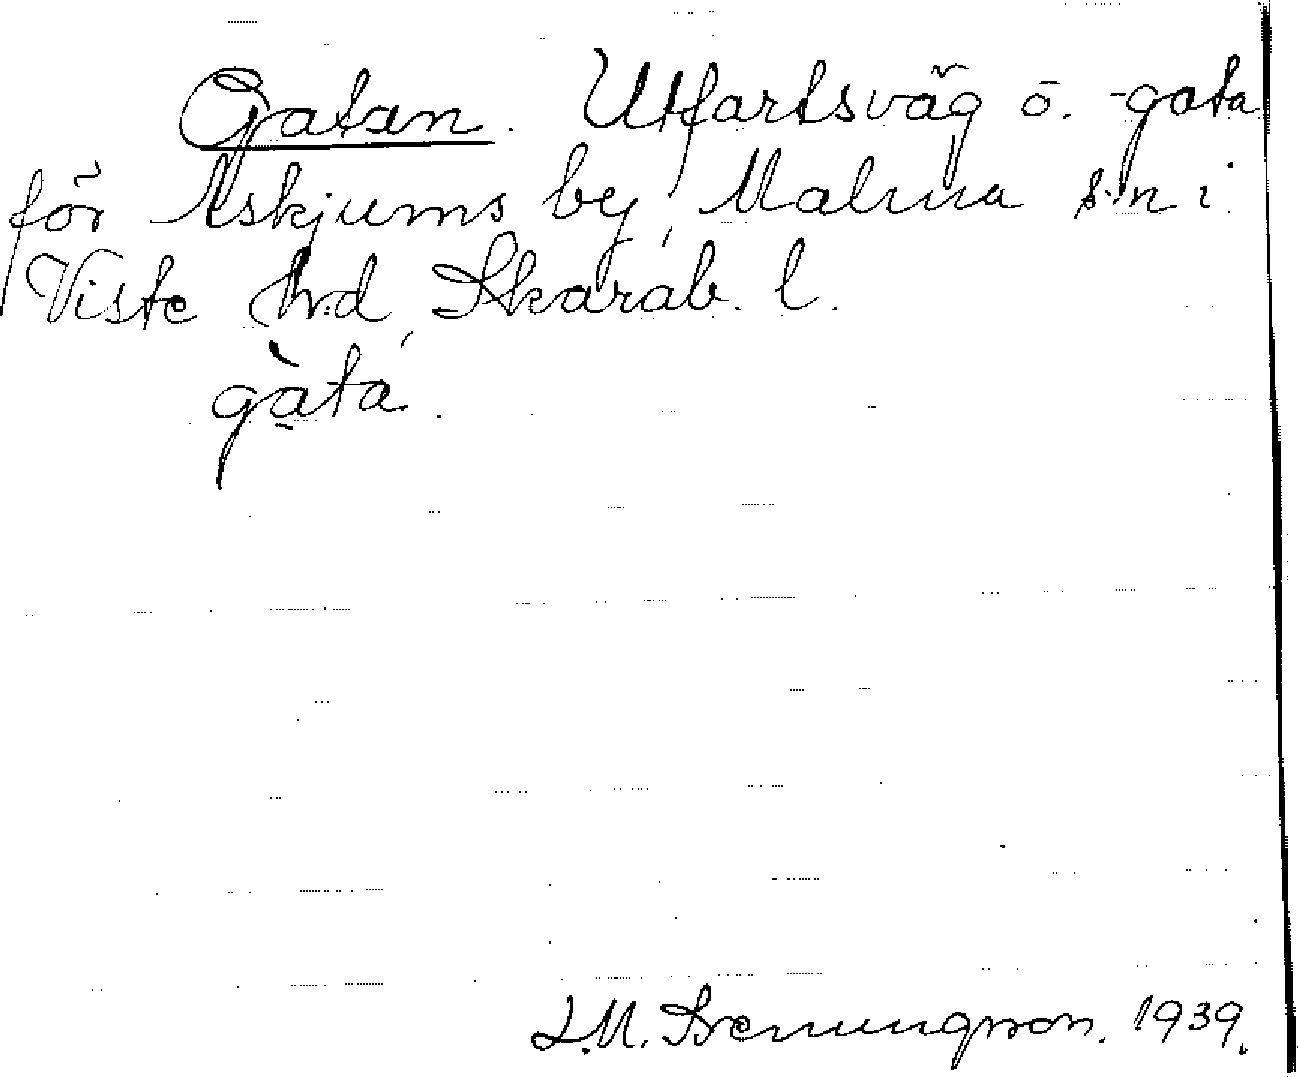 Gatan. Utfartsväg o. -gata
för Askjums by, Malma s:n i
Viste h:d, Skarab. l.
gàta.
L.M. Svenungsson. 1939.